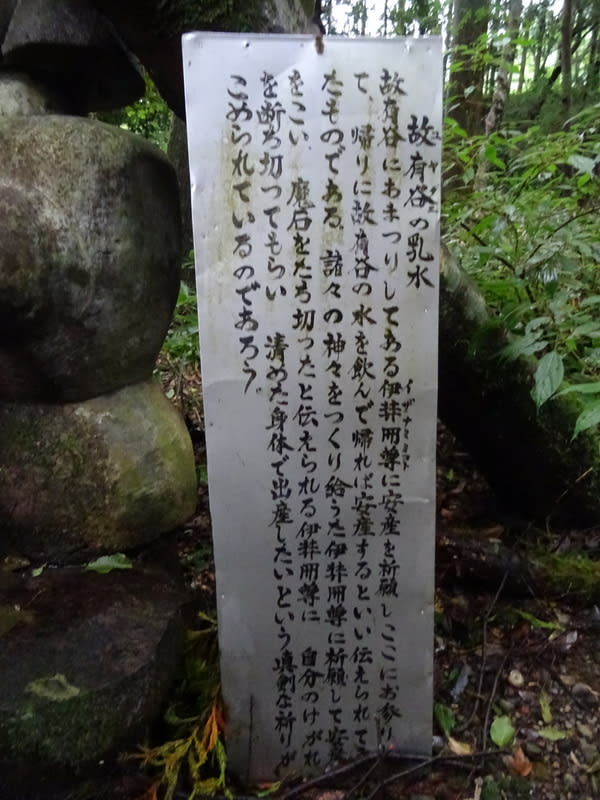 故有谷の乳水
コヤダニ
故有谷におまつりしてある伊弉冊尊に安産を祈願し ここにお参り
イザナミミコト
て、帰りに故有谷の水を飲んで帰れば安産するといい伝えられてき
たものである。諸々の神々をつくり給うた伊弉冊尊に祈願して安産
をこい、魔石をたち切ったと伝えられる伊弉冊尊に 自分のけがれ
を断ち切ってもらい 清めた身体で出産したいという真剣な祈りが
こめられているのであろう。